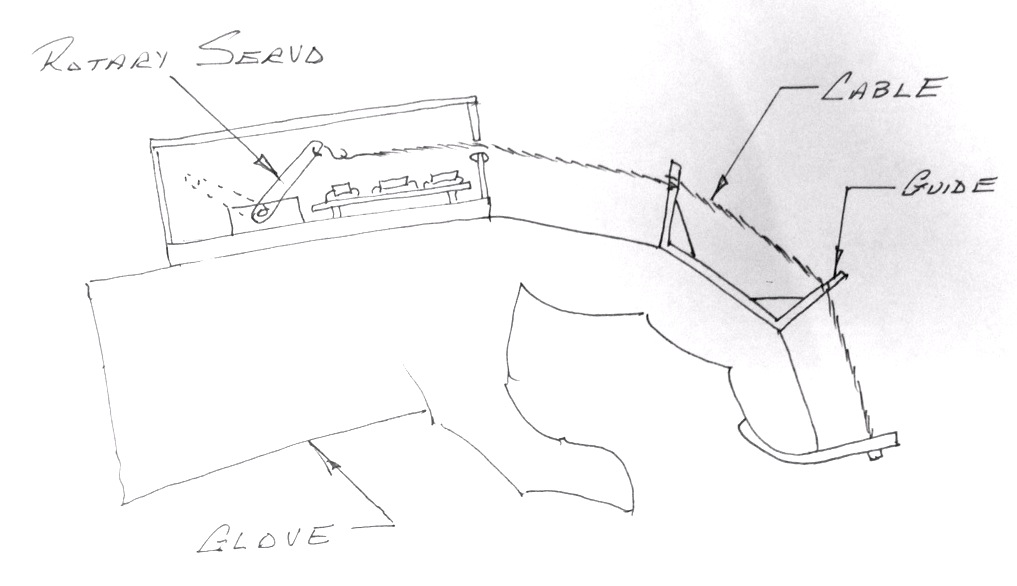 ROTARY SERVO
CABLE
GUIDE
GLOVE